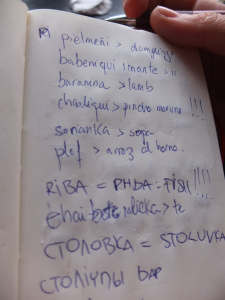 pielmeñi > dumplings
babeniqui imante > "
baranina > lamb
chasliqui > pincho moruno !!!
sonanka > sopa
plof > arroz al horno.
RIBA = РЫБА = FISH !!!!
čhai > te
СТОЛОВКА = STOLOVKA
СТОЛІЧНЫ ВАР